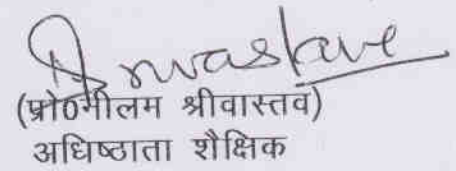 (प्रो0नीलम श्रीवास्तव)
अधिष्ठाता शैक्षिक